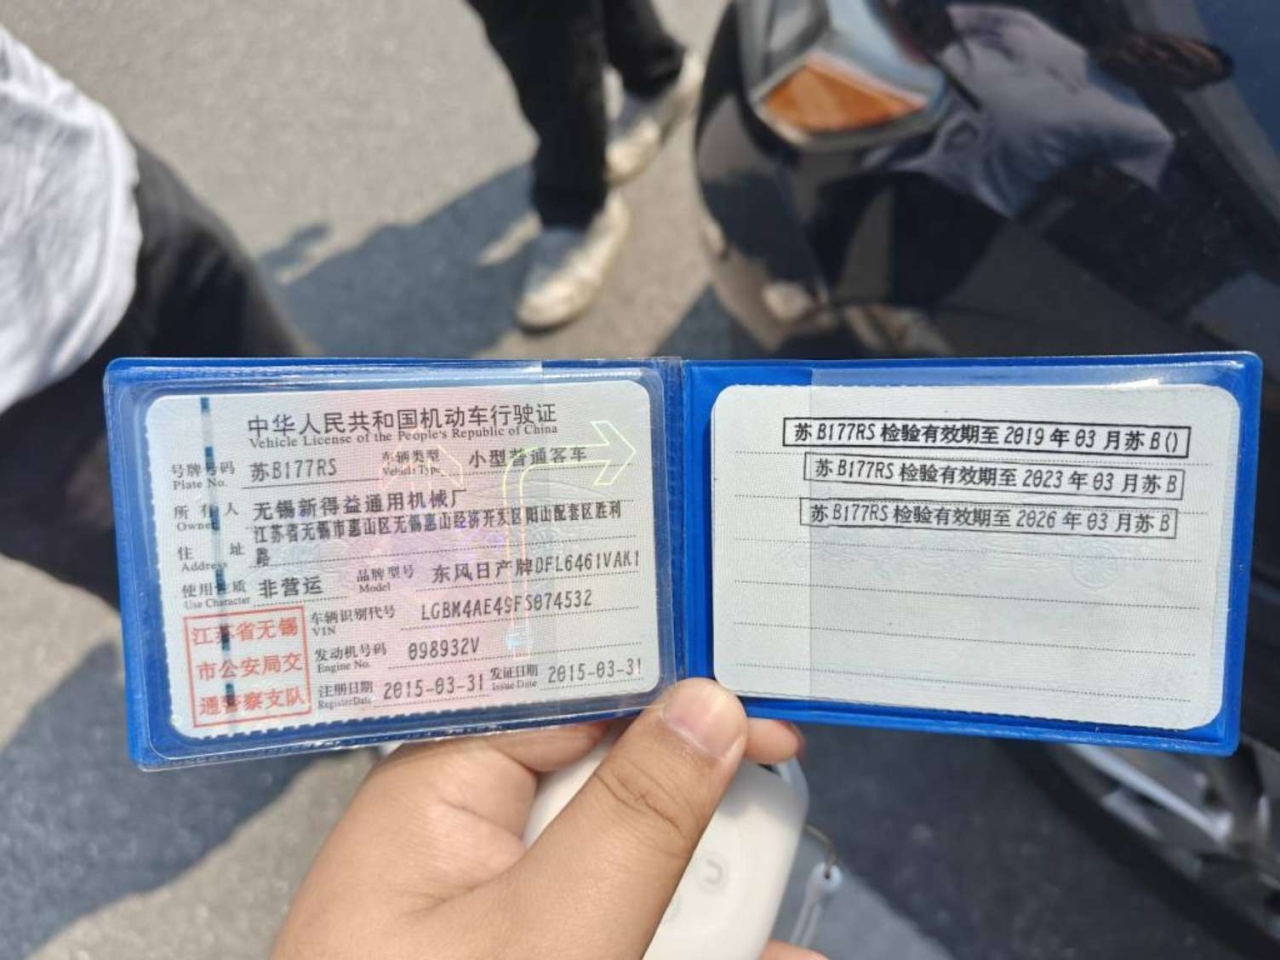 中华人民共和国机动车行驶证
Vehicle License of the People's Republic of China
号牌号码 苏B177RS 车辆类型 小型普通客车
Plate No. Vehicle Type
所有人 无锡新得益通用机械厂
Owner
住址 江苏省无锡市惠山区无锡惠山经济开发区阳山配套区胜利
Address 路
使用性质 非营运 品牌型号 东风日产牌DFL6461VAK1
Use Character Model
车辆识别代号 LGBM4AE49FS074532
VIN
发动机号码 098932V
Engine No.
注册日期 2015-03-31 发证日期 2015-03-31
Register Date Issue Date
江苏省无锡
市公安局交
通警察支队
苏B177RS 检验有效期至 2019 年 03 月苏 B()
苏 B177RS 检验有效期至 2023 年 03 月苏 B
苏 B177RS 检验有效期至 2026 年 03 月苏 B